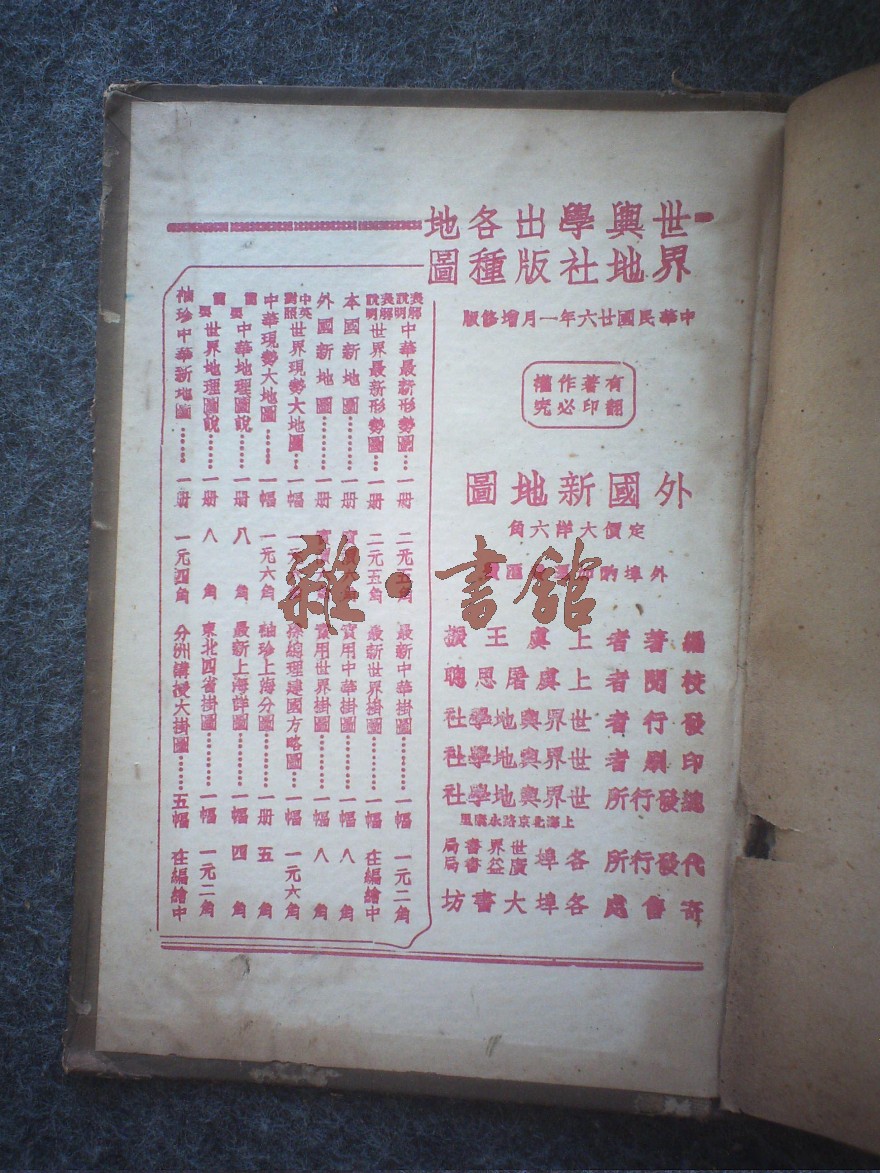 世界輿地學社出版各種地圖
中華民國廿六年一月增修版
有著作權
翻印必究
外國新地圖
定價大洋六角
外埠酌加匯費
編著者 上虞 王振
校閱者 上虞 屠思聰
發行者 世界輿地學社
印刷者 世界輿地學社
總發行所 世界輿地學社
上海北京路永康里
代發行所 各埠 世界書局 廣益書局
寄售處 各埠大書坊
表解說明 中華最新形勢圖…一冊 二元五角
表解說明 世界最新形勢圖…一册 二元五角
本國新地圖……一册
外國新地圖……一册
中英對照 世界現勢大地圖…一幅
中華現勢大地圖……一幅 一元六角
簡要 中華地理圖說……一册 八角
簡要 世界地理圖說……一册 八角
袖珍中華新地圖……一册 一元四角
最新中華掛圖………一幅 一元二角
最新世界掛圖………一幅 在編繪中
實用中華掛圖………一幅 八角
實用世界掛圖………一幅 八角
孫總理建國方略圖…一幅 一元六角
袖珍上海分圖………一册 五角
最新上海詳圖………一幅 四角
東北四省掛圖………一幅 一元二角
分洲講授大掛圖……五幅 在編繪中
雜·書館